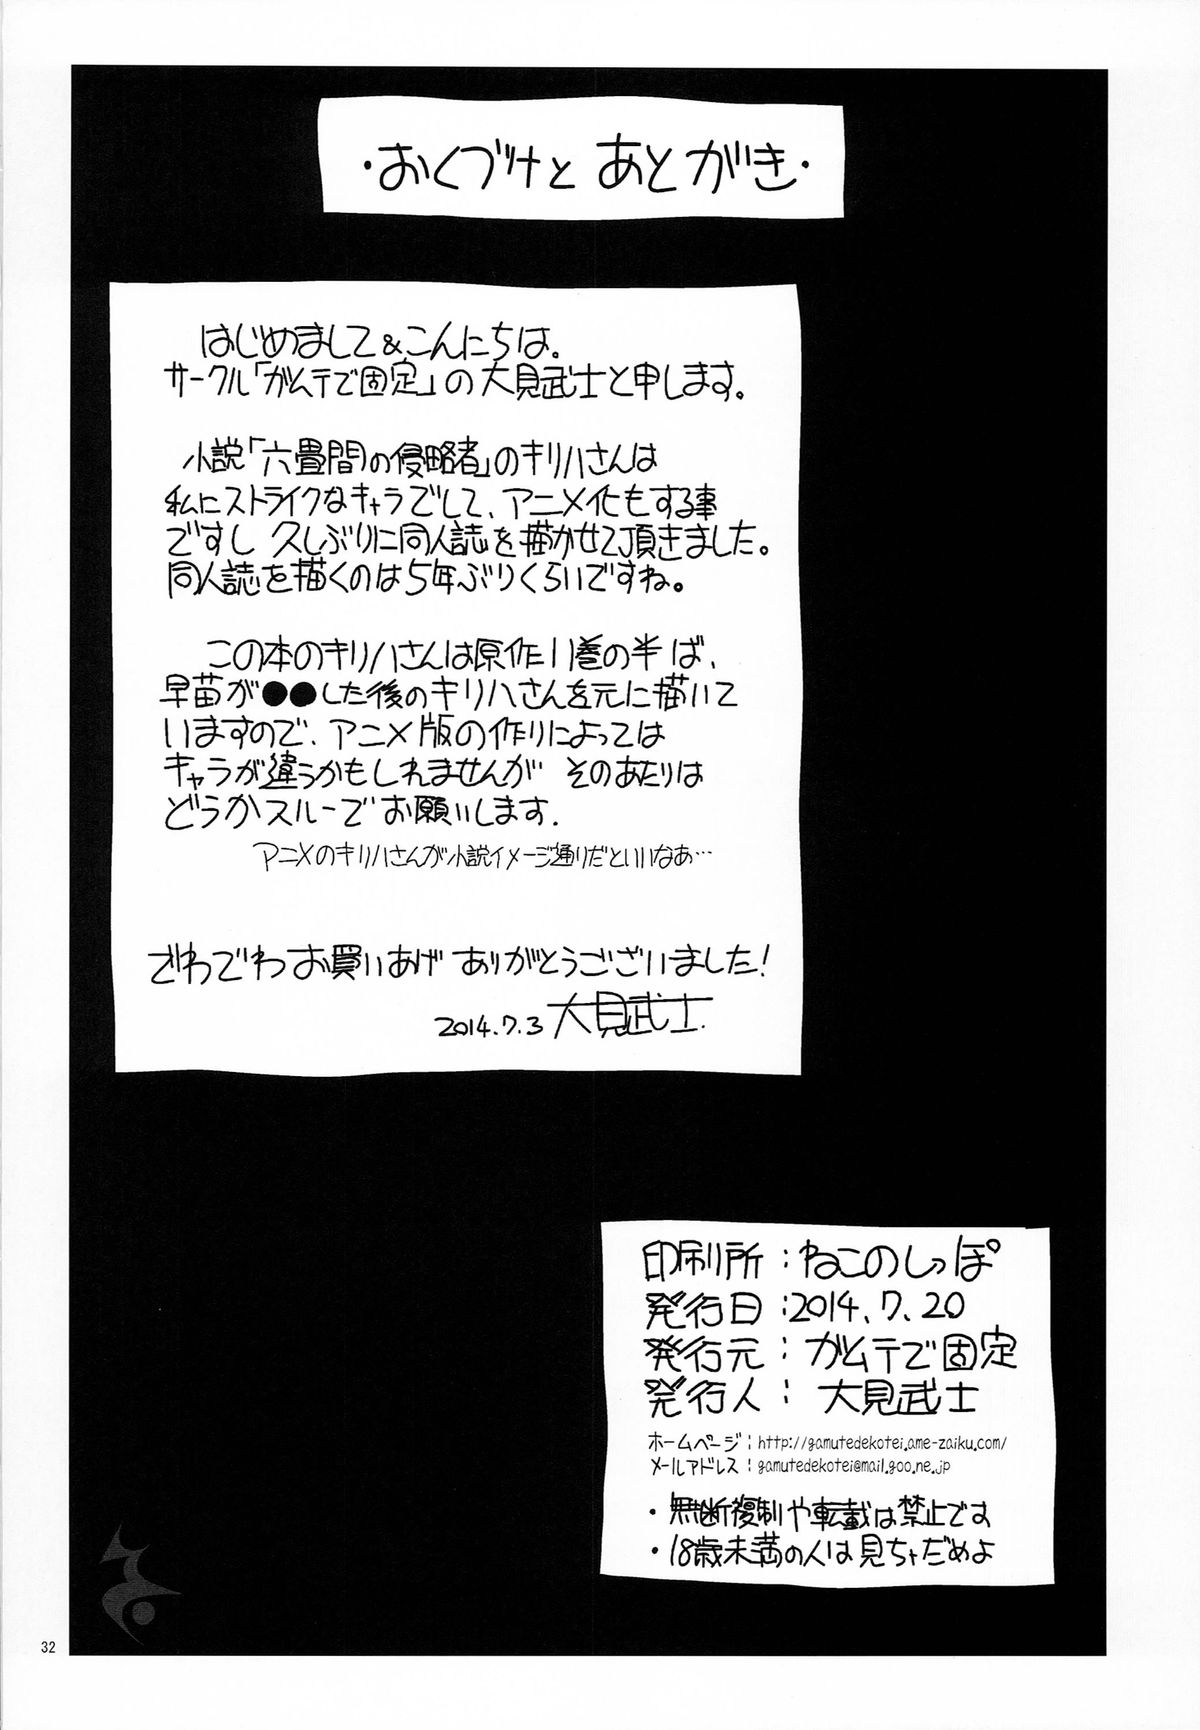 ・おくづけと あとがき・
はじめまして&こんにちは。
サークル「ガムテで固定」の大見武士と申します。
小説「六畳間の侵略者」のキリハさんは
私にストライクなキャラでして、アニメ化もする事
ですし 久しぶりに同人誌を描かせて頂きました。
同人誌を描くのは5年ぶりくらいですね。
この本のキリハさんは原作11巻の半ば、
早苗が●●した後のキリハさんを元に描いて
いますので、アニメ版の作りによっては
キャラが違うかもしれませんが そのあたりは
どうかスルーでお願いします.
アニメのキリハさんが小説イメージ通りだといいなあ…
でわでわお買いあげ ありがとうございました!
2014.7.3 大見武士.
印刷所:ねこのしっぽ
発行日:2014.7.20
発行元:ガムテで固定
発行人:大見武士
ホームページ:http://gamutedekotei.ame-zaiku.com/
メールアドレス:gamutedekotei@mail.goo.ne.jp
・無断複制や転載は禁止です
・18歳未満の人は見ちゃだめよ
32